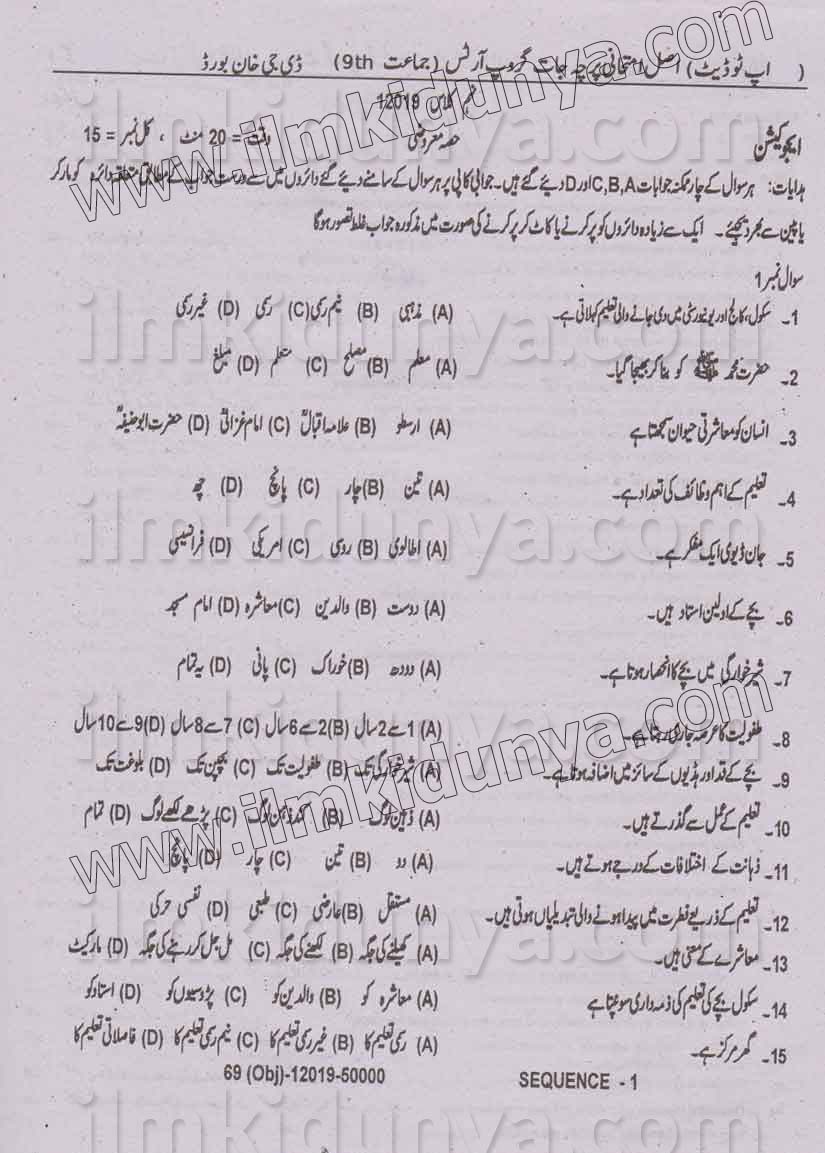 ( اپ ٹو ڈیٹ) اصل امتحانی پرچہ جات گروپ آرٹس ( جماعت 9th) ڈی جی خان بورڈ
نہم کلاس 12019
ایجوکیشن حصہ معروضی وقت = 20 منٹ ، کل نمبر = 15
ہدایات: ہر سوال کے چار ممکنہ جوابات C,B,A اور D دیئے گئے ہیں۔ جوابی کاپی پر ہر سوال کے سامنے دیئے گئے دائروں میں سے درست جواب کے مطابق متعلقہ دائرہ کو مارکر
یا پین سے بھر دیجیئے۔ ایک سے زیادہ دائروں کو پر کرنے یا کاٹ کر پر کرنے کی صورت میں مذکورہ جواب غلط تصور ہوگا
سوال نمبر 1
1۔ سکول، کالج اور یونیورسٹی میں دی جانے والی تعلیم کہلاتی ہے۔ (A) مذہبی (B) نیم رسمی (C) رسمی (D) غیر رسمی
2۔ حضرت محمد ﷺ کو بنا کر بھیجا گیا۔ (A) معلم (B) مصلح (C) متعلم (D) مبلغ
3۔ انسان کو معاشرتی حیوان سمجھتا ہے (A) ارسطو (B) علامہ اقبالؒ (C) امام غزالیؒ (D) حضرت ابو حنیفہؒ
4۔ تعلیم کے اہم وظائف کی تعداد ہے۔ (A) تین (B) چار (C) پانچ (D) چھ
5۔ جان ڈیوی ایک مفکر ہے۔ (A) اطالوی (B) روسی (C) امریکی (D) فرانسیسی
6۔ بچے کے اولین استاد ہیں۔ (A) دوست (B) والدین (C) معاشرہ (D) امام مسجد
7۔ شیر خوارگی میں بچے کا انحصار ہوتا ہے۔ (A) دودھ (B) خوراک (C) پانی (D) یہ تمام
8۔ طفولیت کا عرصہ جاری رہتا ہے۔ (A) 1 سے 2 سال (B) 2 سے 6 سال (C) 7 سے 8 سال (D) 9 سے 10 سال
9۔ بچے کے قد اور ہڈیوں کے سائز میں اضافہ ہوتا ہے۔ (A) شیر خوارگی تک (B) طفولیت تک (C) بچپن تک (D) بلوغت تک
10۔ تعلیم کے عمل سے گذرتے ہیں۔ (A) ذہین لوگ (B) کند ذہن لوگ (C) پڑھے لکھے لوگ (D) تمام
11۔ ذہانت کے اختلافات کے درجے ہوتے ہیں۔ (A) دو (B) تین (C) چار (D) پانچ
12۔ تعلیم کے ذریعے فطرت میں پیدا ہونے والی تبدیلیاں ہوتی ہیں۔ (A) مستقل (B) عارضی (C) طبعی (D) نفسی حرکی
13۔ معاشرے کے معنی ہیں۔ (A) کھیلنے کی جگہ (B) لکھنے کی جگہ (C) مل جل کر رہنے کی جگہ (D) مارکیٹ
14۔ سکول بچے کی تعلیم کی ذمہ داری سونپتا ہے (A) معاشرہ کو (B) والدین کو (C) پڑوسیوں کو (D) استاد کو
15۔ گھر مرکز ہے۔ (A) رسمی تعلیم کا (B) غیر رسمی تعلیم کا (C) نیم رسمی تعلیم کا (D) فاصلاتی تعلیم کا
69 (Obj)-12019-50000 SEQUENCE - 1
www.ilmkidunya.com
www.ilmkidunya.com
ilmkidunya.com
ilmkidunya.com
ilmkidunya.com
ilmkidunya.com
ilmkidunya.com
ilmkidunya.com